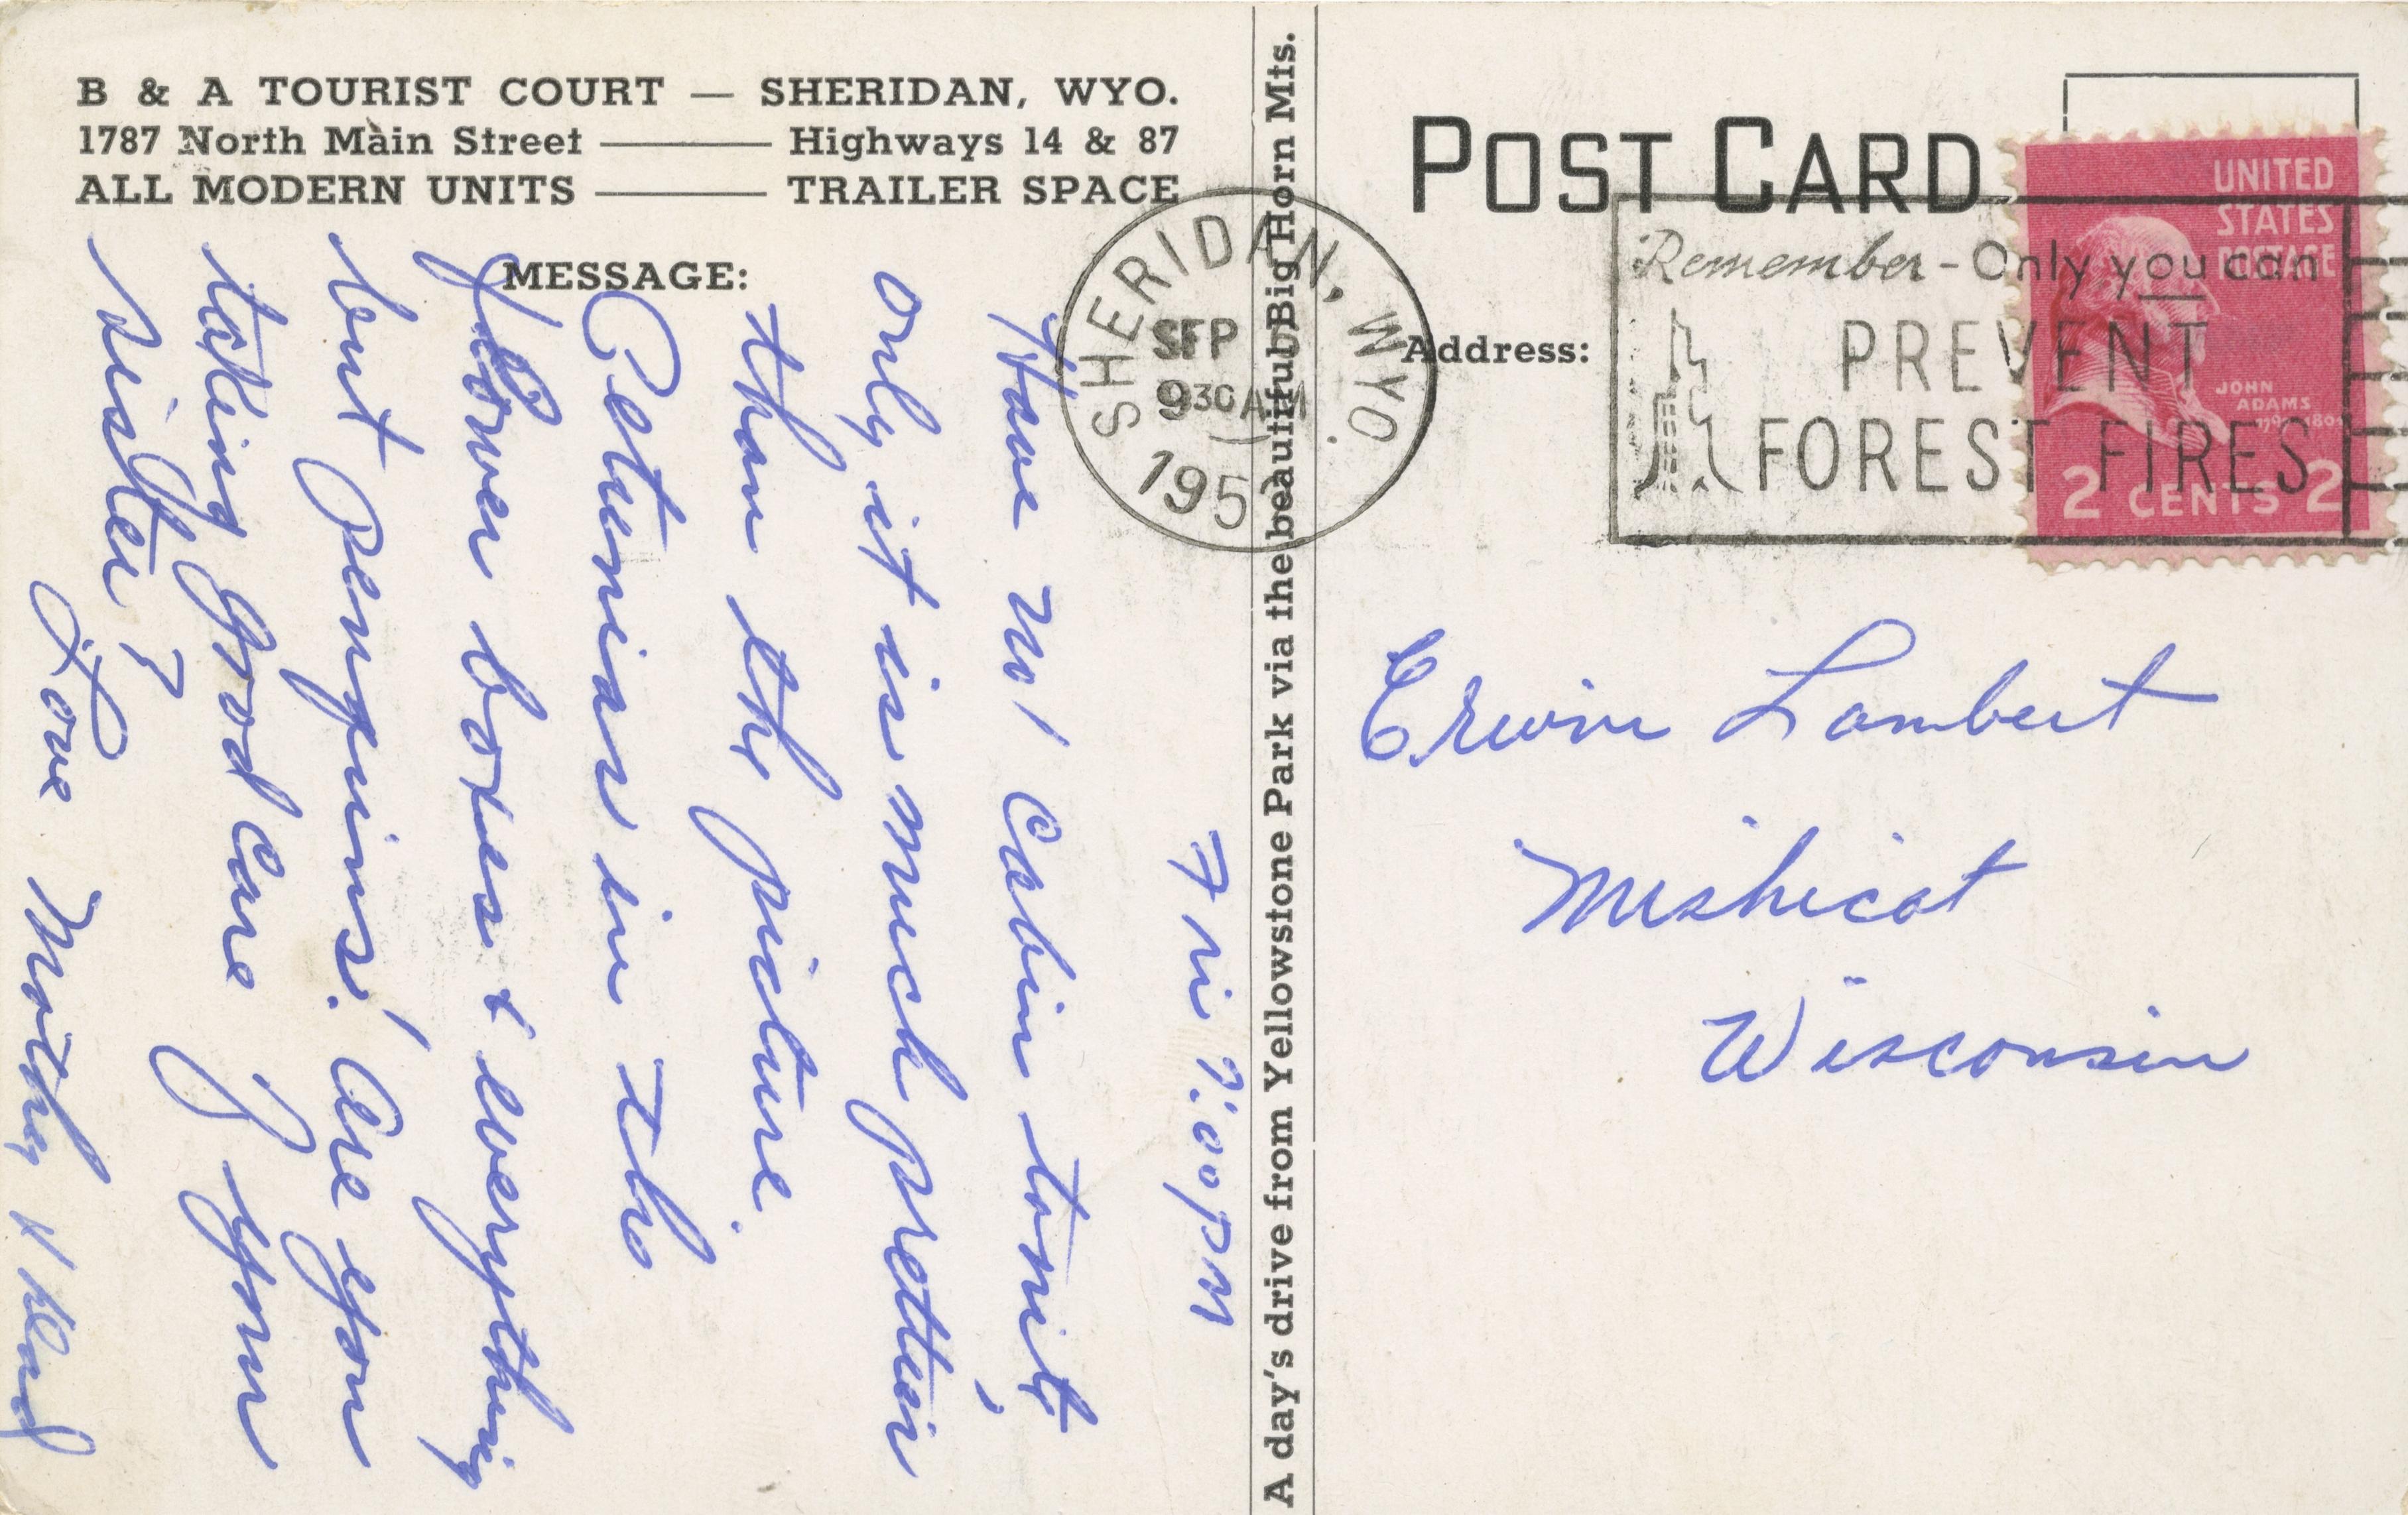 B & A TOURIST COURT — SHERIDAN, WYO.
1787 North Main Street ——— Highways 14 & 87
ALL MODERN UNITS ——— TRAILER SPACE
MESSAGE:
Fri 7:00 PM
Have No 1 Cabin tonit,
only it is much prettier
than the picture.
Petunias in the
flower boxes & everything
but penguins! Are you
taking good care of your
sister?
Love Mother & Dad
A day's drive from Yellowstone Park via the beautiful Big Horn Mts.
POST CARD
Address:
SHERIDAN, WYO.
SEP
9 30 AM
195
Remember - Only you can
PREVENT
FOREST FIRES
UNITED
STATES
POSTAGE
JOHN
ADAMS
2 CENTS 2
Erwin Lambert
Mishicot
Wisconsin